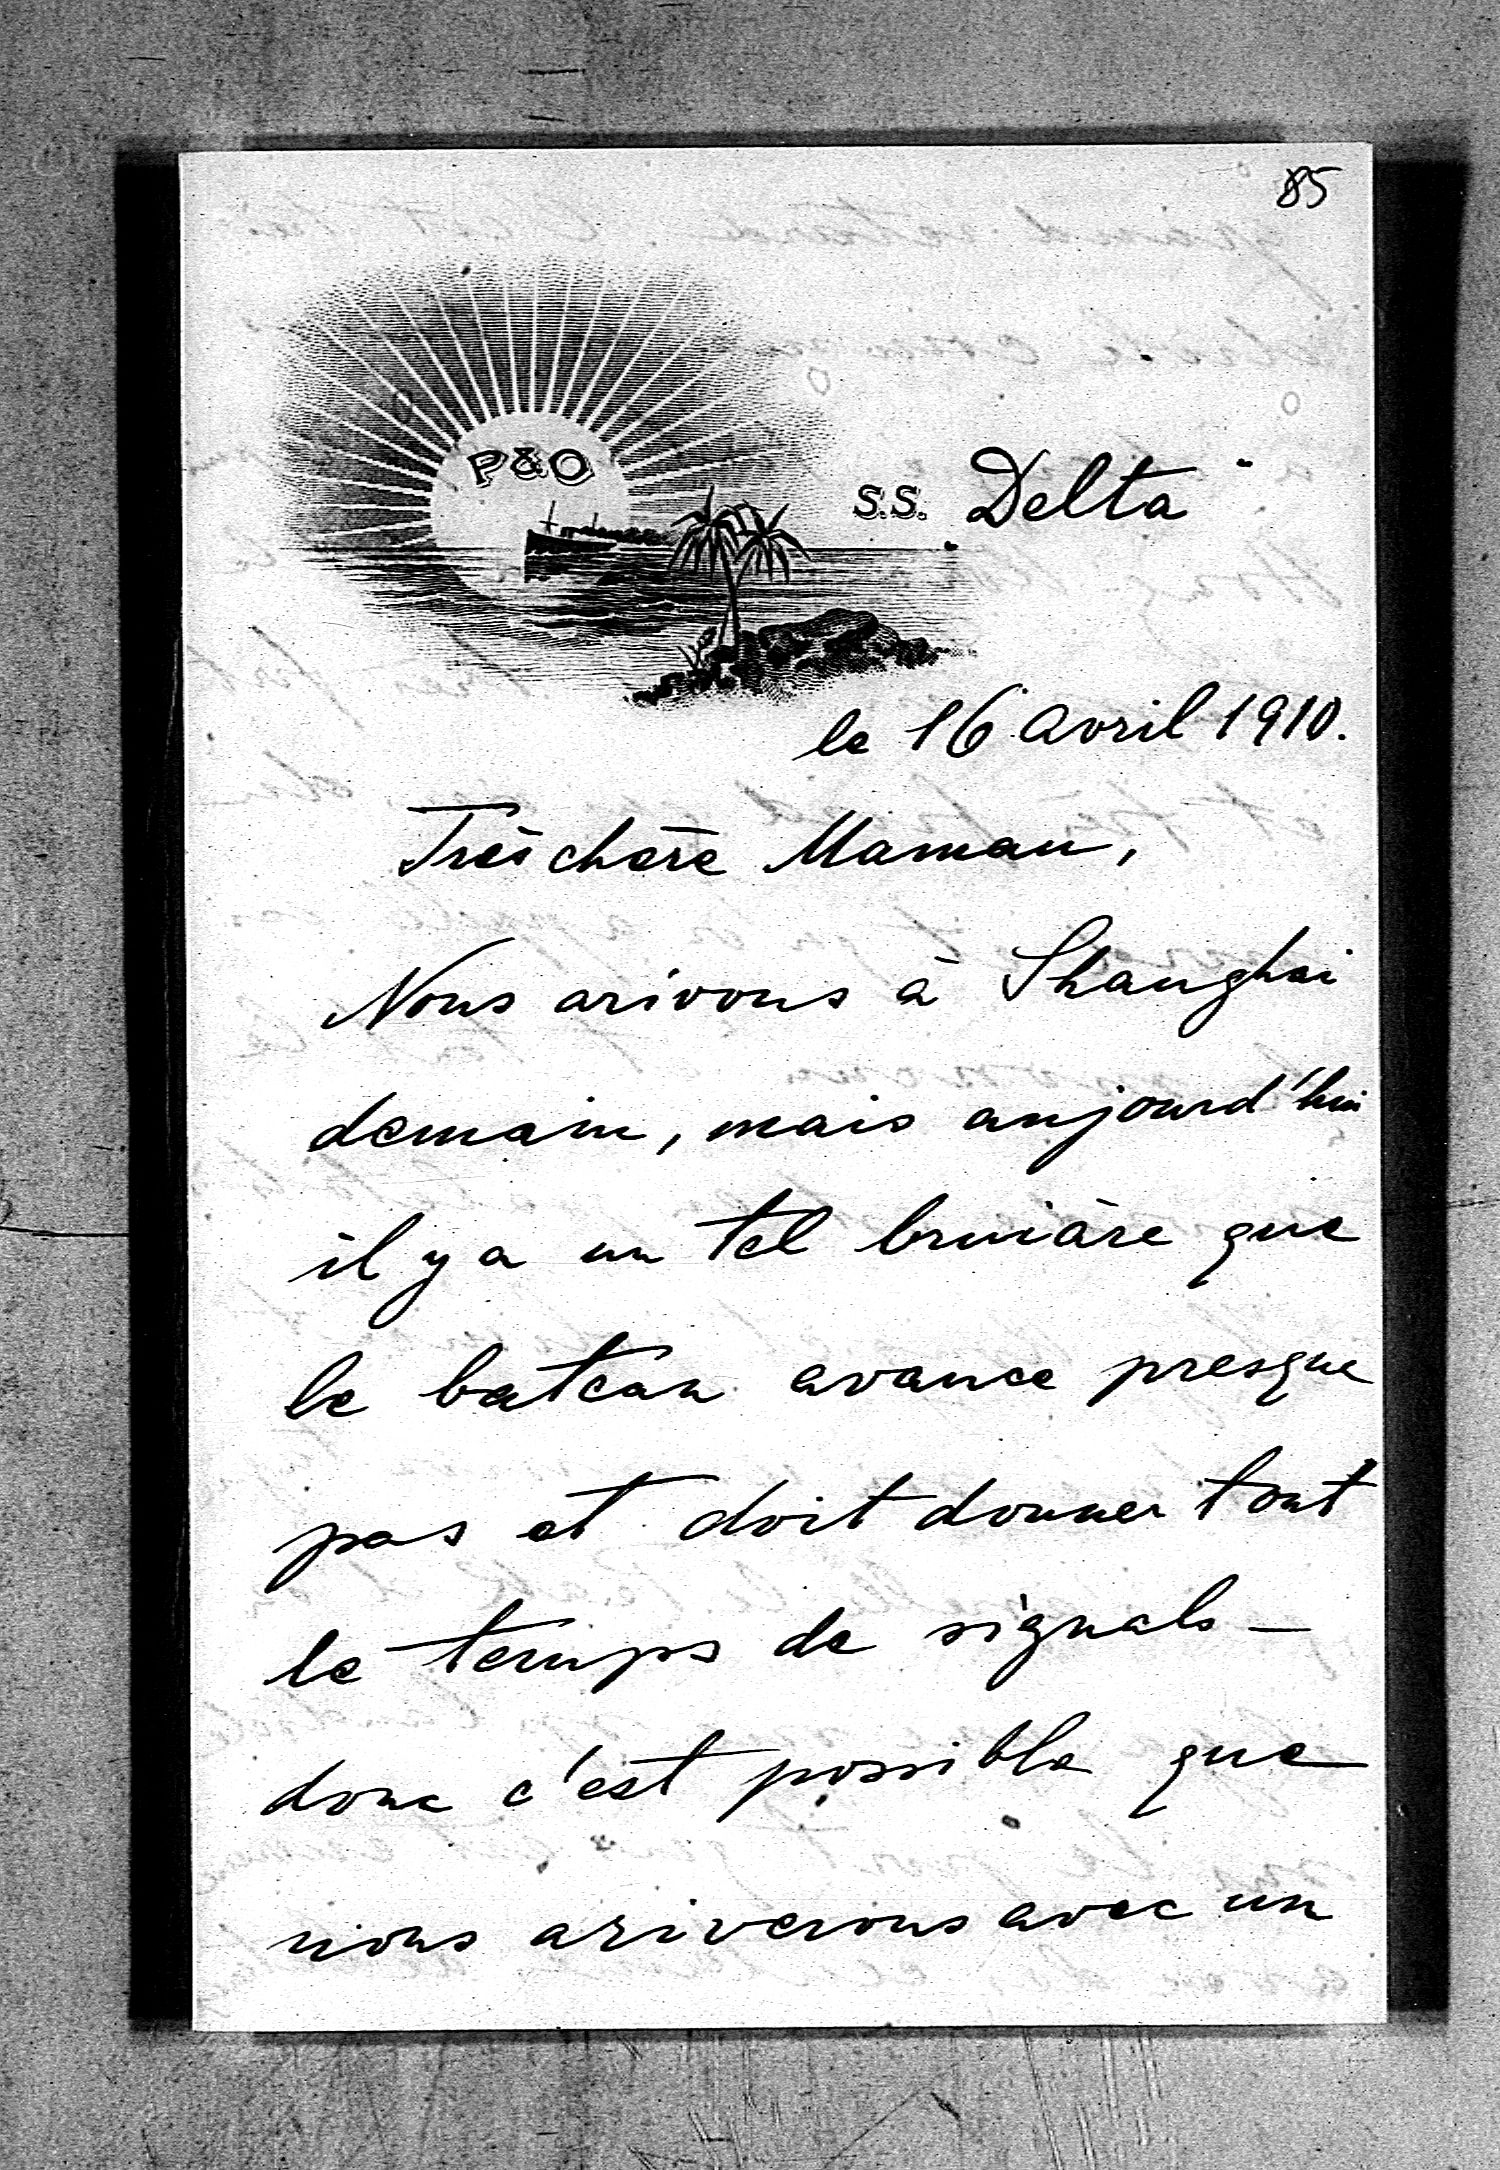 85
P&O
S.S. Delta
le 16 avril 1910.
Très chère Maman,
Nous arivons à Shanghai
demain, mais aujourd'hui
il y a un tel bruière que
le bateau avance presque
pas et doit donner tout
le temps de signals —
donc c'est possible que
nous ariverons avec un